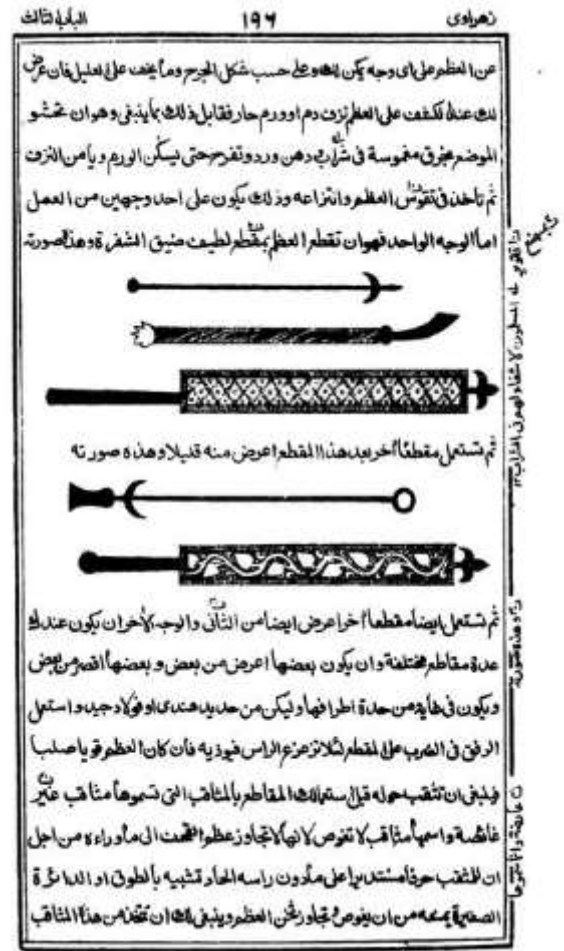 زهراوي ١٩٦ الباب الثالث
عن العظم على اى وجه يمكن لك وعلى حسب شكل الجرح وما يخف على العليل فان عرض
لك عند الكشف على العظم نزف دم او ورم حار فقابل ذلك بما ينبغى وهو ان تحشو
الموضع بخرق مغموسة فى شراب دهن ورد وتفرح حتى يسكن الورم ويامن النزف
ثم تاخذ فى العظم وانتزاعه وذلك يكون على احد وجهين من العمل
اما الوجه الواحد فهو ان تقطع العظم بمقطع لطيف ضيق الشفرة وهذه صورته
ثم تستعمل مقطعا أخر بعد هذا المقطع اعرض منه قليلا وهذه صورته
ثم تستعمل ايضا مقطعا أخر اعرض ايضا من الثانى والوجه الأخر ان يكون عندك
عدة مقاطع مختلفة وان يكون بعضها اعرض من بعض وبعضها اقصر من بعض
ويكون فى غاية من حدة اطرافها وليكن من حديد هندى او فولاد جيد واستعمل
الرفق فى الضرب على المقطع لئلا تزعزع الراس فيوذيه فان كان العظم قويا صلبا
فينبغى ان تثقب حوله قبل استعمالك المقاطع بالمثاقب التى تسموها مثاقب غير
غائصة واسمها مثاقب لا تغوص لانها لا تجاوز عظم القحف الى ما وراءه من اجل
ان للمثقب حرفا مستديرا على مادون راسه الحاد شبيه بالطوق او الدائرة
الصغيرة يمنعه من ان يغوص ويجاوز ثخن العظم وينبغى لك ان تتخذ من هذه المثاقب